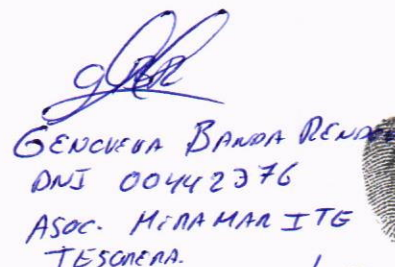 GENOVEVA BANDA RENDON
DNI 00442376
ASOC. MIRAMAR ITE
TESORERA.